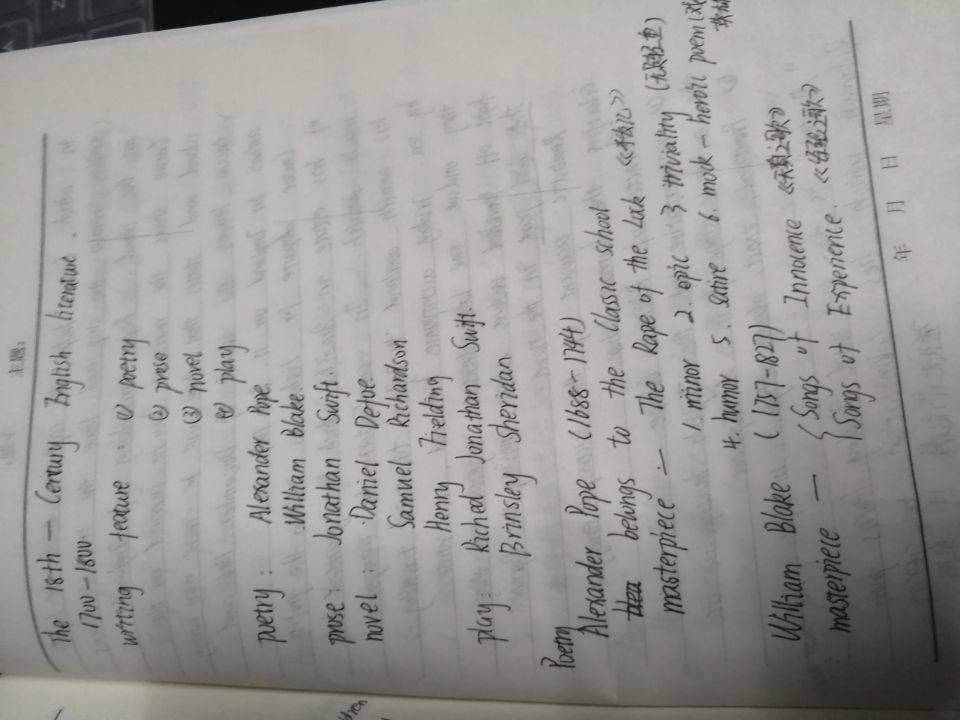 主题:
The 18th - Century English literature.
1700-1800.
writing feature : ① poetry
② prose
③ novel
④ play
poetry : Alexander Pope
William Blake.
prose : Jonathan Swift.
novel : Daniel Defoe
Samuel Richardson
Henry Fielding
play : Richad Jonathan Swift.
Brinsley Sheridan
Poetry
Alexander Pope (1688-1744)
belongs to the classic school
masterpiece :- The Rape of the Lock 《夺发记》
1. minor 2. epic 3 triviality (无足轻重)
4. humor 5. satire 6. mock-heroic poem (
William Blake (1757-1827)
masterpiece — { Songs of Innocence 《天真之歌》
Songs of Experience. 《经验之歌》
年 月 日 星期